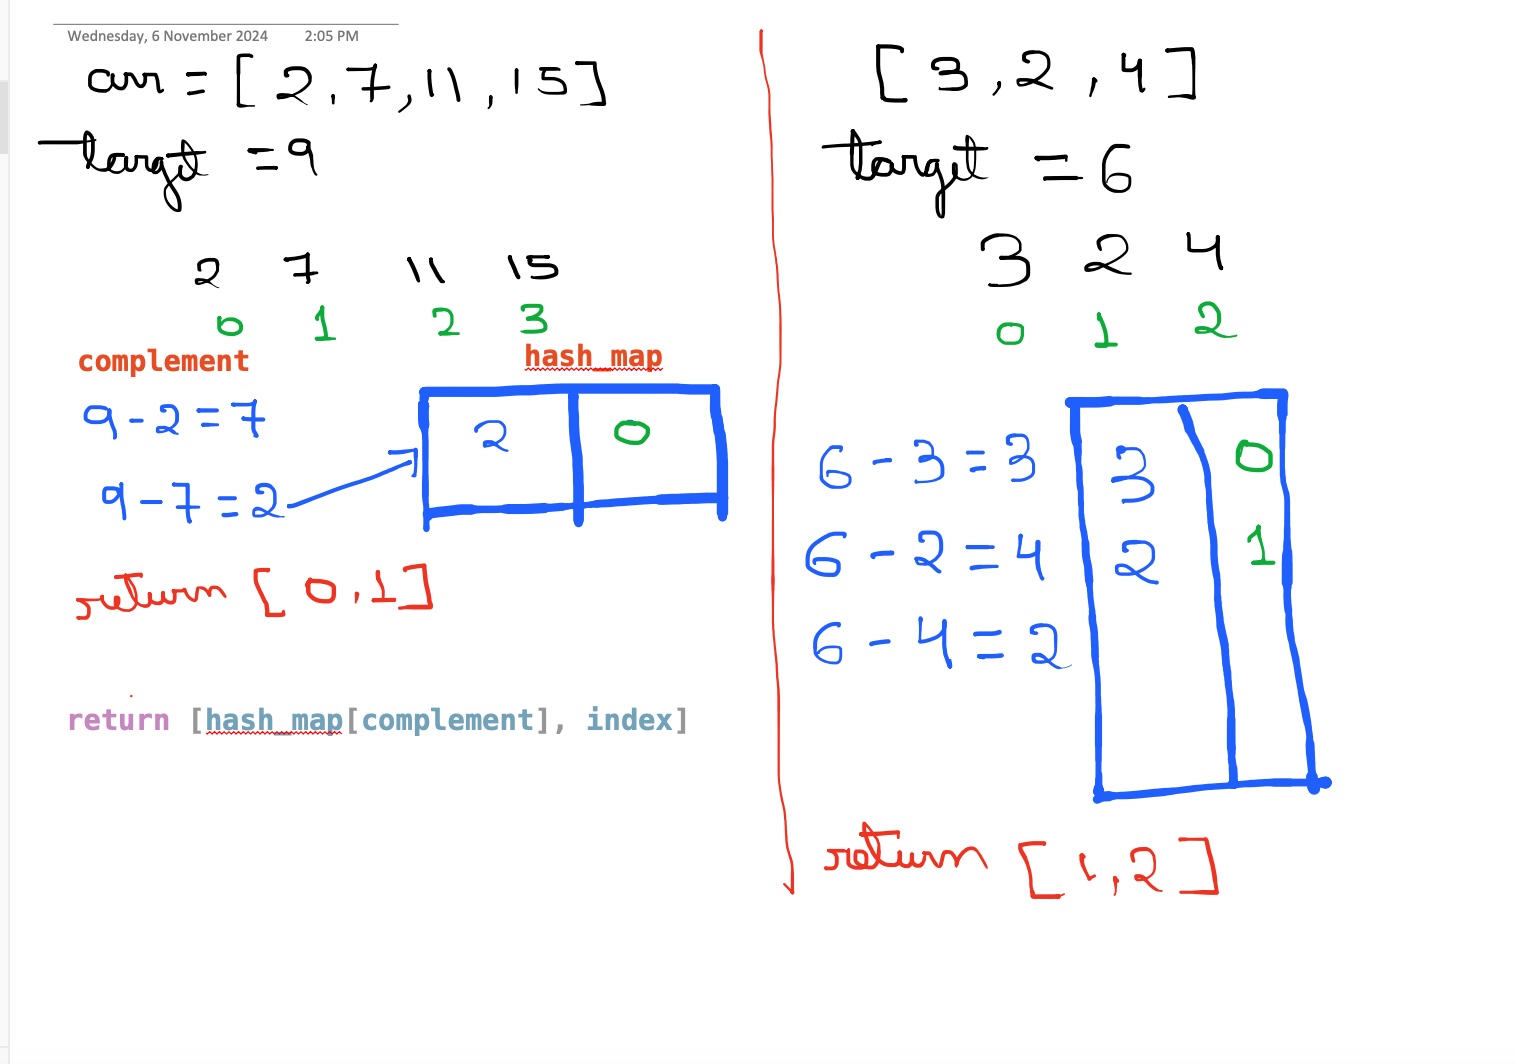 Wednesday, 6 November 2024 2:05 PM
arr = [ 2, 7, 11, 15 ]
target = 9
2 7 11 15
0 1 2 3
complement hash_map
9 - 2 = 7
2 0
9 - 7 = 2
return [ 0, 1 ]
return [hash_map[complement], index]
[ 3, 2, 4 ]
target = 6
3 2 4
0 1 2
6 - 3 = 3 3 0
6 - 2 = 4 2 1
6 - 4 = 2
return [ 1, 2 ]